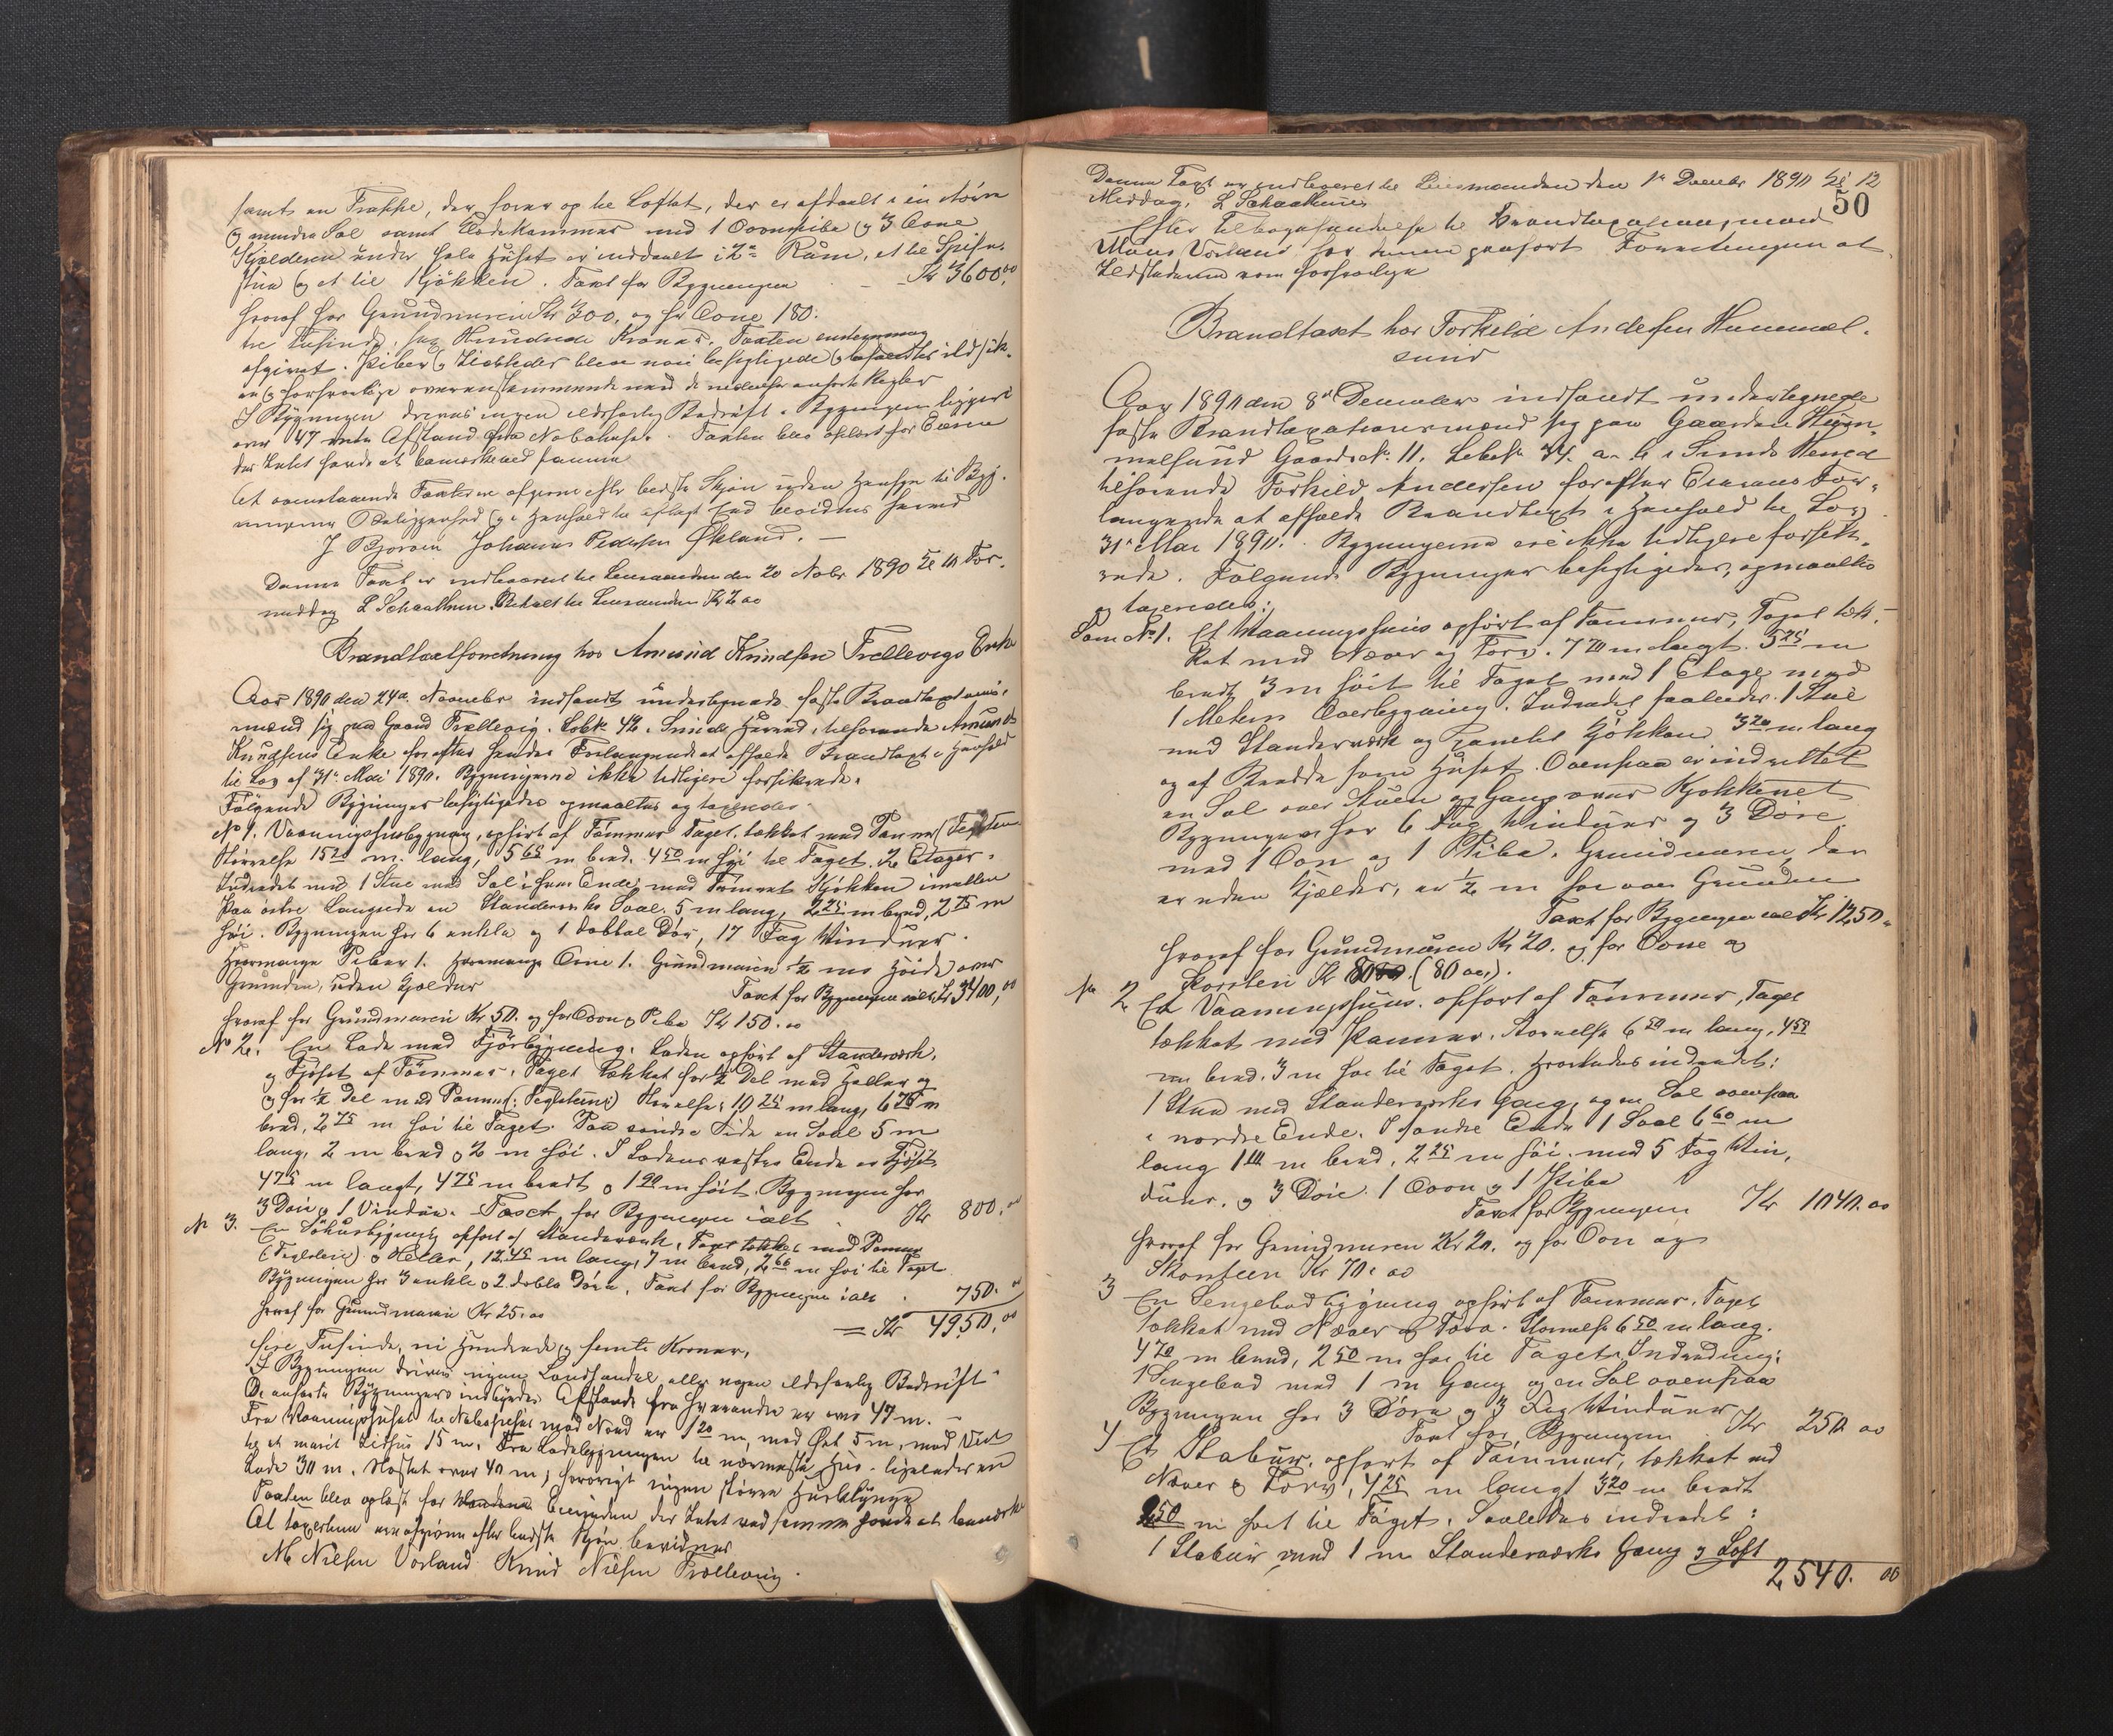 samt en Trappe, der fører op til Loftet, der er afdeelt i en større
og mindre Sal samt Klædekammer med 1 Ovnpibe og 3 Ovne
Kjælderen under hele Huset er inddeelt i 2de Rum, et til Spise-
stue og et til Kjøkken. Taxt for Bygningen Kr 3600,00
hvoraf for Grundmuren Kr 300, og for Ovne 180.
tre Tusinde, sex Hundrede Kroner. Taxten
afgivet. Piber og Ildsteder bleve nøie besigtigede og befundtes ildsik-
re og forsvarlige overensstemmende med de anførte Regler
I Bygningen drives ingen ildsfarlig Bedrift. Bygningen ligger
over 47 meter Afstand fra Nabohuse. Taxten blev oplæst for Eieren
der Intet havde at bemærke ved samme
At ovenstaaende Taxten er afgivne efter bedste Skjøn uden Hensyn til Byg-
ningernes Beliggenhed og i Henhold til aflagt Eed bevidnes herved
J Bjørnen Johannes Pedersen Økland. —
Denne Taxt er indleveret til Lensmanden den 20 Novbr 1890 Kl 10 For-
middag L Schaathun. Betalt til Lensmanden Kr 2.00
Brandtaxtforretning hos Amund Knudsen Trellevigs Enke
Aar 1890 den 24de November indfandt undertegnede faste Brandtaxations-
mænd sig paa Gaard Trellevig. Løbk 42 i Sunde Herred, tilhørende Amund
Knudsens Enke for efter hendes Forlangende at afholde Brandtaxt i Henhold
til Lov af 31te Mai 1890. Bygningerne ikke tidligere forsikrede.
Følgende Bygninger besigtigedes opmaaltes og taxeredes.
No 1. Vaaningshusbygning, opført af Tømmer Taget tækket med Panner (Teglsten
Størrelse 15 20 m. lang, 5 65 m bred. 4 50 m høi til Taget. 2 Etager.
Indredet med 1 Stue med Sal i hver Ende, med Tømret Kjøkken imellem
Paa østre Langside en Standerverks Sval. 5 m lang, 2 25 m bred, 2 75 m
høi. Bygningen har 6 enkle og 1 dobbel Dør, 17 Fag Vinduer.
Hvormange Piber 1. Hvormange Ovne 1. Grundmuren 1/2 m Høide over
Grunden, uden Kjelder Taxt for Bygningen ialt Kr 3400,00
hvoraf for Grundmuren Kr 50. og for Ovn og Pibe Kr 150.00
No 2. En Lade med Fjøsbygning. Laden opført af Standerværk,
og Fjøset af Tømmer. Taget tækket for 1/2 Del med Heller og
og for 1/2 Del med Panner (: Teglstene:) Størrelse: 10 25 m lang, 6 75 m
bred, 2 75 m høi til Taget. Paa søndre Side en Sval 5 m
lang, 2 m bred og 2 m høi. I Ladens vestre Ende er Fjøset
4 75 m langt, 4 75 m bredt og 1 90 m høit. Bygningen har
3 Døre og 1 Vindue. Taxt for Bygningen ialt Kr 800.00
No 3. En Søhusbygning opført af Standerværk, Taget tækket med Panner
(Teglsten) og Heller, 12 45 m lang, 7 m bred, 2 66 m høi til Taget
Bygningen har 3 enkle og 2 doble Døre. Taxt for Bygningen ialt 750.00
hvoraf for Grundmuren Kr 25.00
= Kr 4950,00
fire Tusinde, ni Hundrede og femti Kroner.
I Bygningen drives ingen Landhandel eller nogen ildsfarlig Bedrift
De anførte Bygningers indbyrdes Afstande fra hverandre er over 47 m. —
Fra Vaaningshuset til Nabohuset mod Nord er 1 20 m, mod Øst 5 m, mod Vest
til et maret Ildhus 15 m. Fra Ladebygningen til nærmeste Hus - ligeledes en
Lade 30 m. Nøstet over 40 m, forøvrigt ingen større Husklynge
Taxten blev oplæst for Eierinden der Intet ved samme havde at bemærke
At taxterne ere afgivne efter bedste Skjøn bevidnes
M Nilsen Vorland Knud Nilsen Trællevig.
Denne Taxt er indleveret til Lensmanden den 1te Decembr 1890 Kl 12
Middag. L Schaathun
50
Efter Tilbagesendelse til Brandtaxationsmand
Mons Vorland har denne paaført Forretningen at
Ildstederne var forsvarlige
Brandtaxt hos Torkild Andersen Hummel-
sund
Aar 1890 den 8de December indfandt undertegnede
faste Brandtaxationsmænd sig paa Gaarden Hum-
melsund Gaards No. 11. Løbe No 34. a. b i Sunds Herred
tilhørende Torkild Andersen for efter Eierens For-
langende at afholde Brandtaxt i Henhold til Lov
31te Mai 1890. Bygningerne ere ikke tidligere forsik-
rede. Følgende Bygninger besigtigedes, opmaaltes
og taxeredes:
Som No 1. Et Vaaningshuus opført af Tømmer, Taget tæk-
ket med Næver og Torv. 7 70 m langt. 5 25 m
bredt 3 m høit til Taget med 1 Etage med
1 Meters Overbygning. Indredet saaledes. 1 Stue
med Standerværk og panelet Kjøkken 3 20 m lang
og af Bredde som Huset. Ovenpaa er indrettet
en Sal over Stuen og Gang over Kjøkkenet
Bygningen har 6 Fag Vinduer og 3 Døre
med 1 Ovn og 1 Pibe. Grundmuren, der
er uden Kjælder, er 1/2 m høi over Grunden
Taxt for Bygningen ialt Kr 1250.
hvoraf for Grundmuren Kr 20. og for Ovne og
Skorsten Kr (80 00).
No 2 Et Vaaningshuus. opført af Tømmer, Taget
tækket med Panner. Størrelse 6 50 m lang, 4 50
m bred. 3 m høi til Taget. Hvorledes indredet:
1 Stue med Standerværks Gang, og en Sal ovenpaa
i nordre Ende. I søndre Ende 1 Sval 6 60 m
lang 1 10 m bred, 2 25 m høi. med 5 Fag Vin-
duer. og 3 Døre. 1 Ovn og 1 Pibe
Taxt for Bygningen Kr 1040.00
hvoraf for Grundmuren Kr 20. og for Ovn og
Skorsteen Kr 70.00
3 En Sengebodbygning opført af Tømmer. Taget
tækket med Næver og Torv. Størrelse 6 50 m lang.
4 70 m bred, 2 50 m høi til Taget. Indredning:
1 Sengebod med 1 m Gang og en Sal ovenpaa
Bygningen har 3 Døre og 3 Fag Vinduer
Taxt for Bygningen Kr 250 00
4 Et Stabur, opført af Tømmer, tækket med
Næver og Torv, 4 25 m langt 3 20 m bredt
2 50 m høit til Taget. Saaledes indredet:
1 Stabur med 1 m Standerværks Gang og Loft
2540. 00